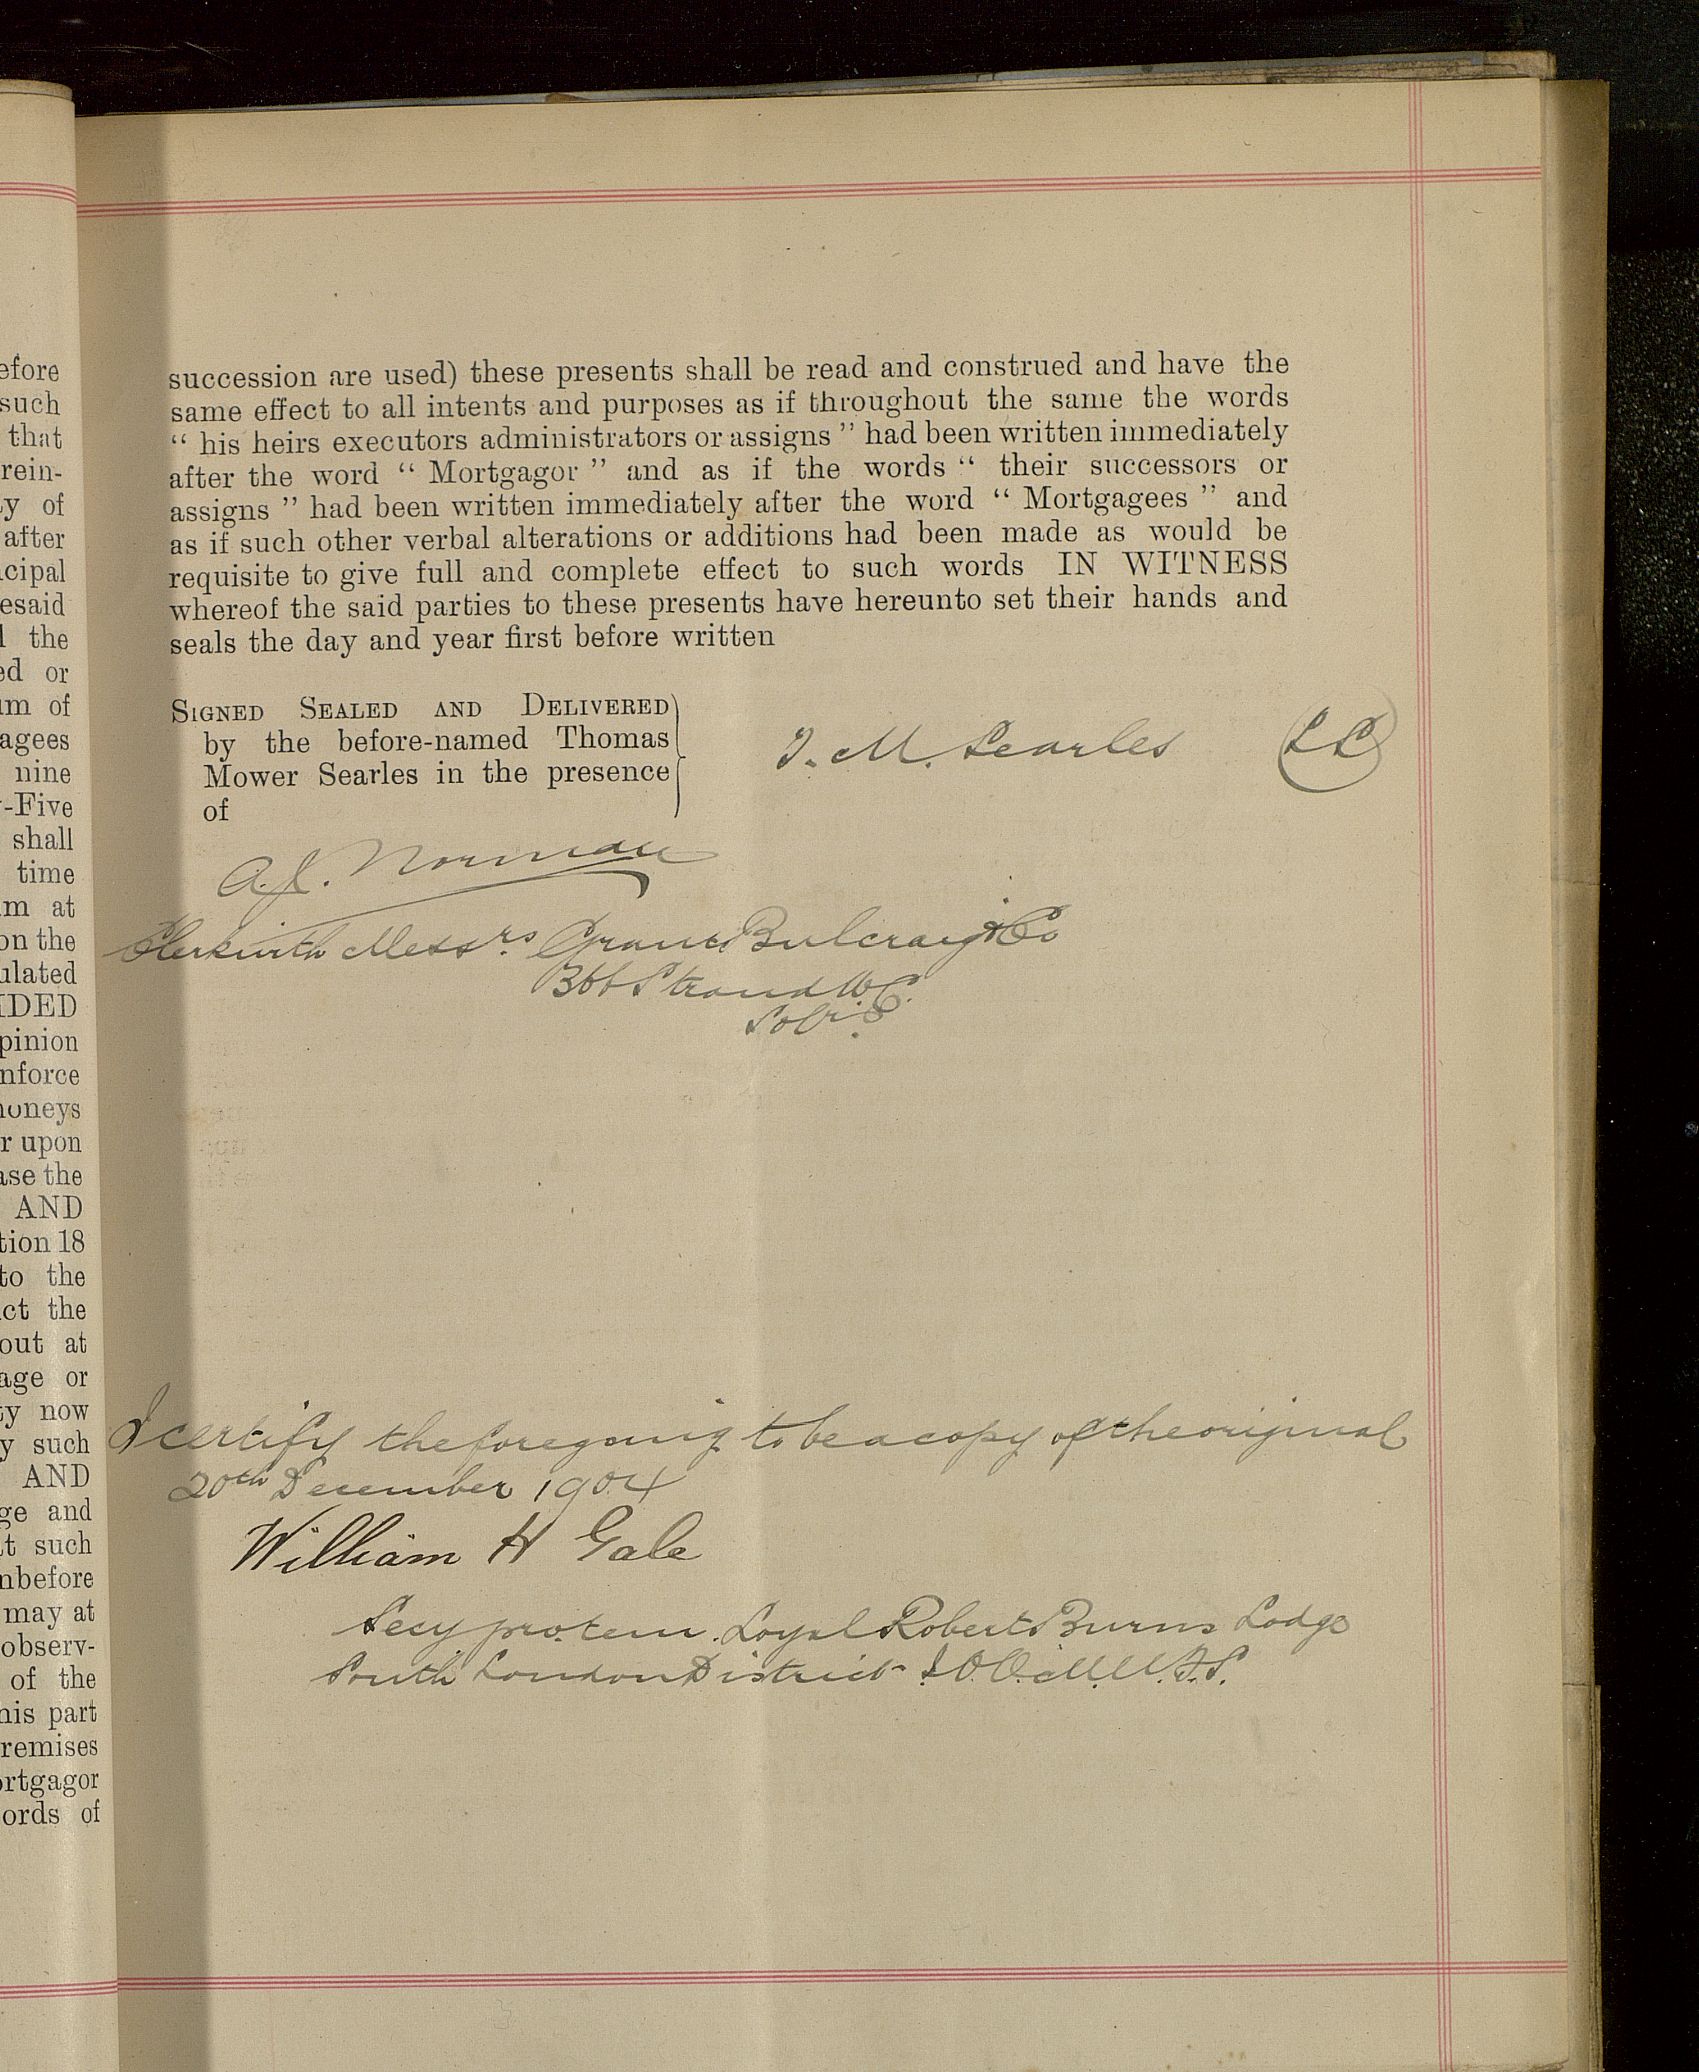 efore
such
that
rein-
y of
after
cipal
esaid
the
ed or
um of
agees
nine
-Five
shall
time
um at
on the
ulated
IDED
pinion
nforce
noneys
r upon
ase the
AND
tion 18
to the
ct the
out at
age or
ty now
y such
AND
ge and
at such
nbefore
may at
observ-
of the
his part
remises
ortgagor
ords of
succession are used) these presents shall be read and construed and have the
same effect to all intents and purposes as if throughout the same the words
“ his heirs executors administrators or assigns ” had been written immediately
after the word “ Mortgagor ” and as if the words “ their successors or
assigns ” had been written immediately after the word “ Mortgagees ” and
as if such other verbal alterations or additions had been made as would be
requisite to give full and complete effect to such words IN WITNESS
whereof the said parties to these presents have hereunto set their hands and
seals the day and year first before written
SIGNED SEALED AND DELIVERED
by the before-named Thomas
Mower Searles in the presence
of
T. M. Searles LS
A. J. Norman
Clerk with Messrs. Grant Bulcraig & Co
366 Strand W.C.
Solrs.
I certify the foregoing to be a copy of the original
20th December 1904
William H Gale
Secy pro. tem. Loyal Robert Burns Lodge
South London District I.O.O.M.U.F.S.